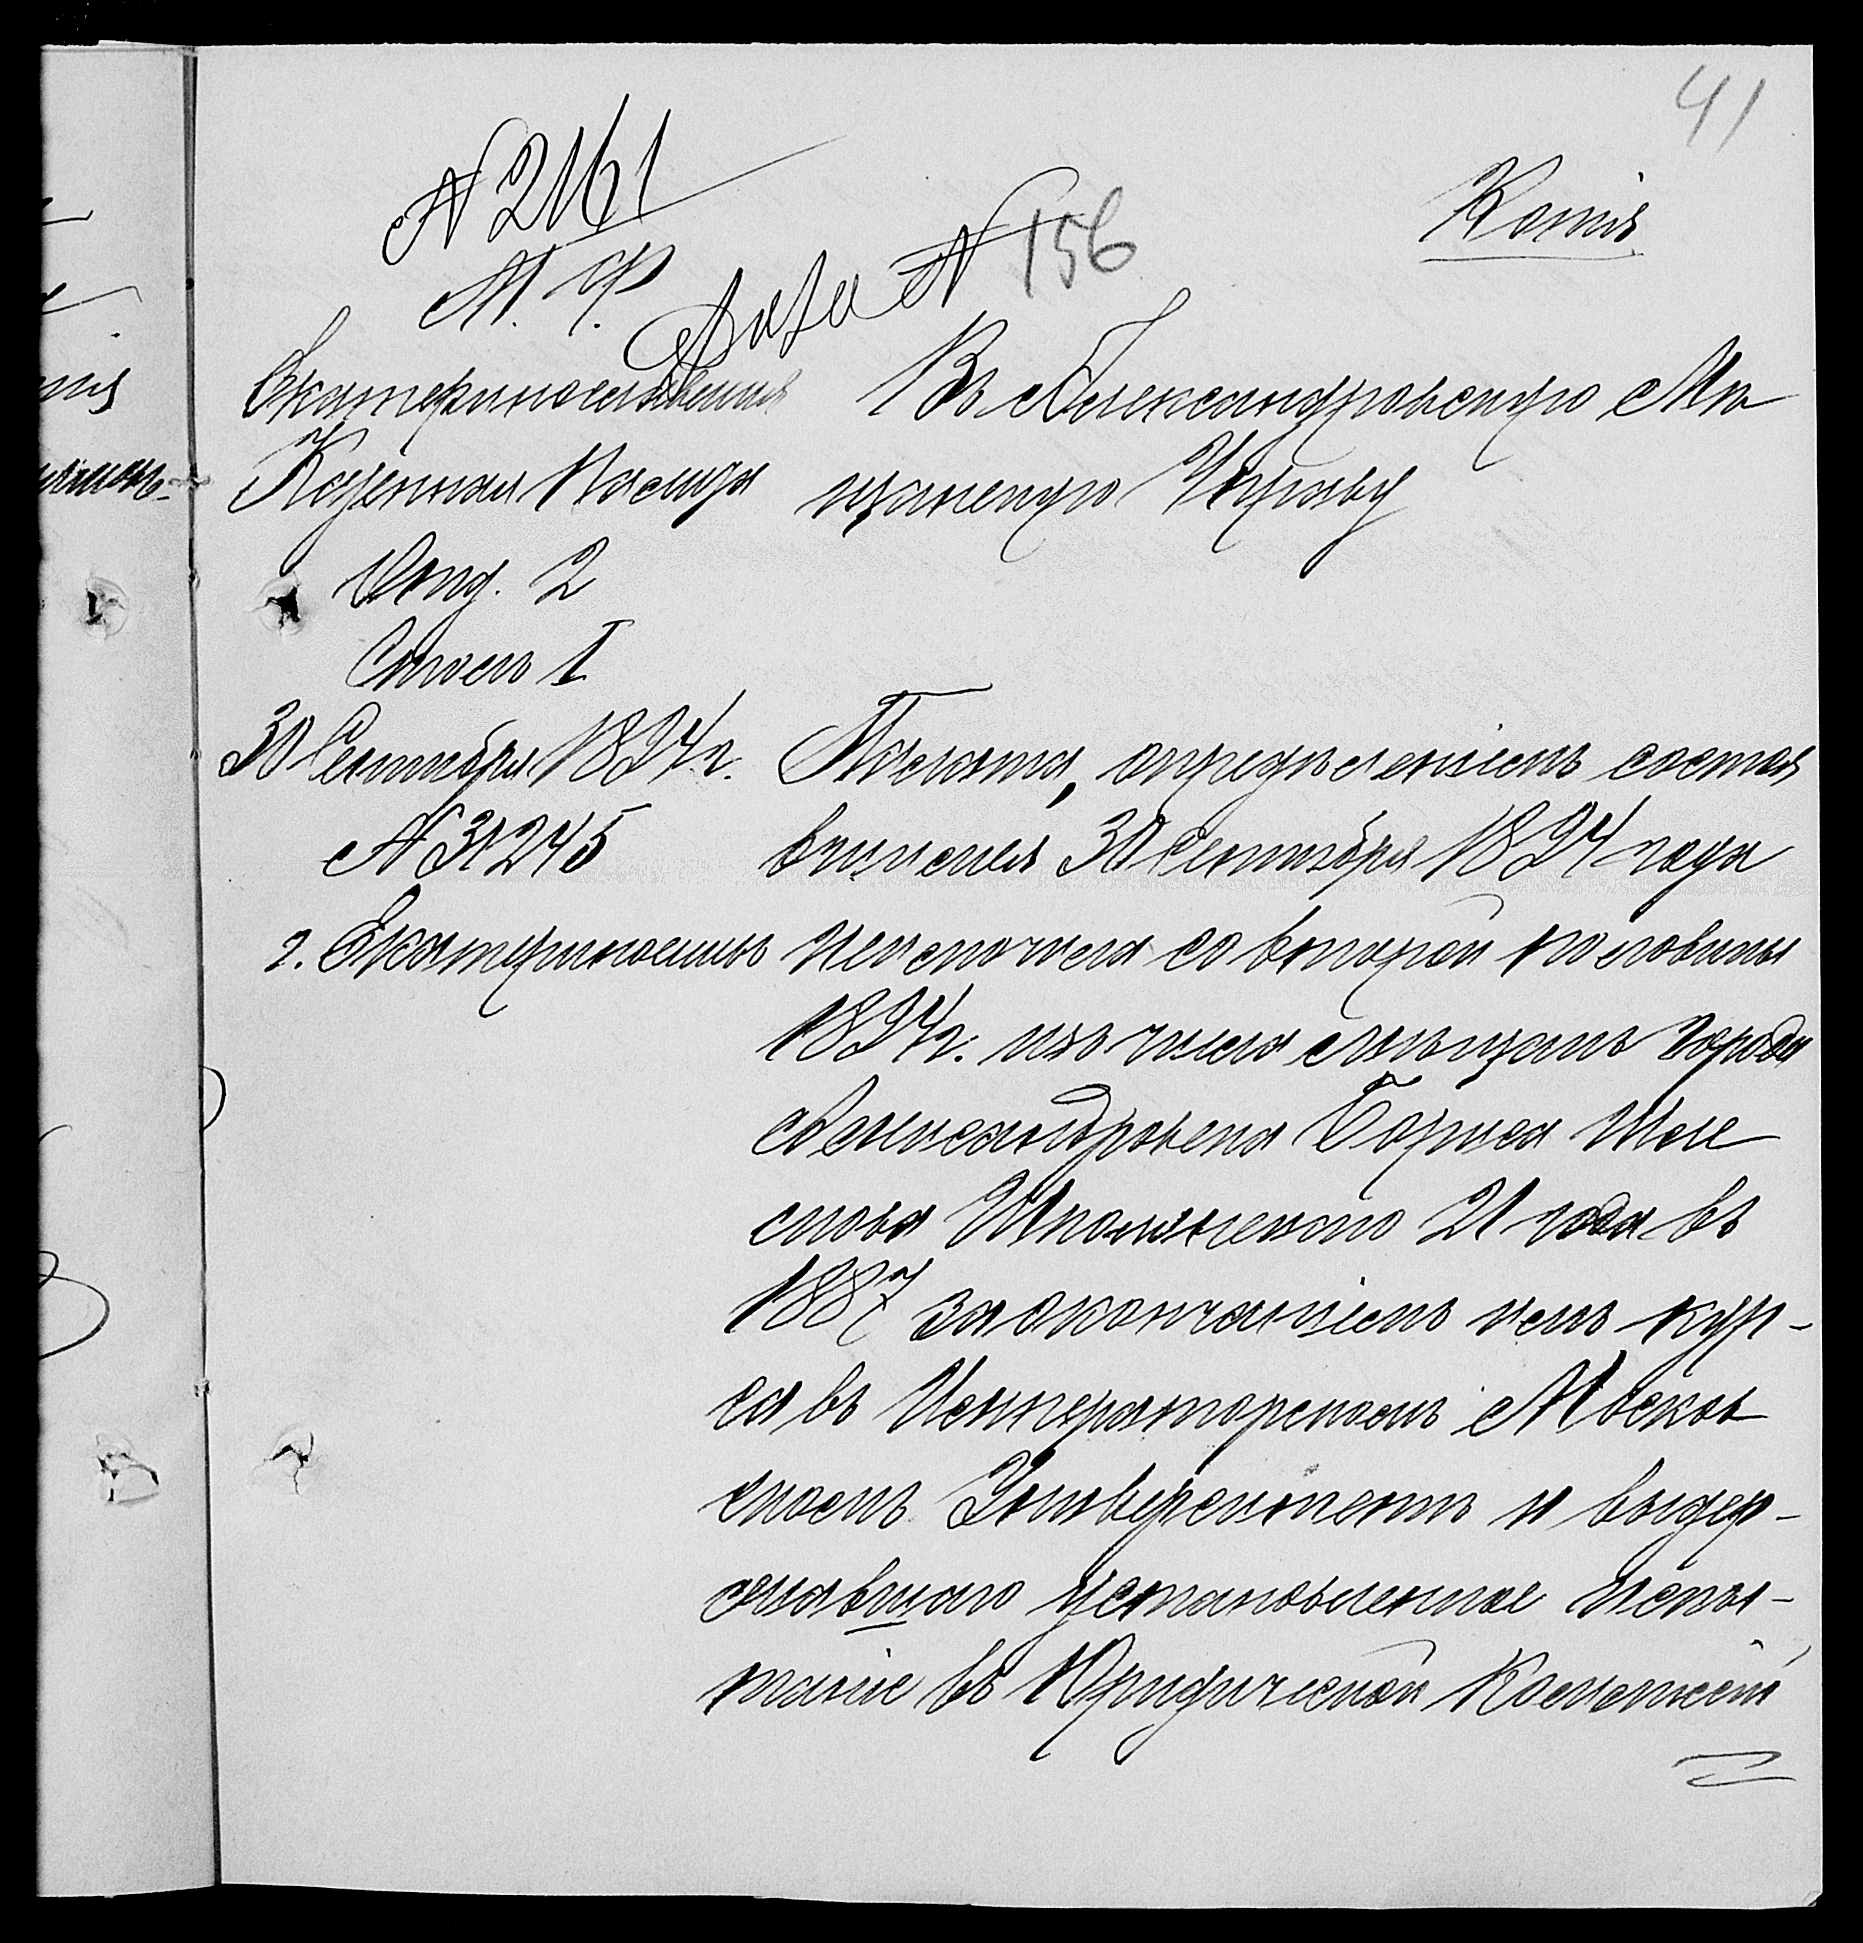 41
№ 2161
М. Ф.
Дѣло № 156
Копія
Екатеринославская
Казенная Палата
Отд. 2
Столъ I
30 Сентября 1894 г.
№ 31245
г. Екатеринославъ
Въ Александровскую Мѣ
щанскую Управу
Палата, опредѣленіемъ состоя
вшимся 30 Сентября 1894 года
исключила со второй половины
1894 г. изъ числа мѣщанъ города
Александровска Бориса
21 года въ
1887 за окончаніемъ имъ кур-
са въ Императорскомъ Москов
скомъ Университетѣ и выдер-
жавшаго установленное испы-
таніе въ Юридической Комиссіи